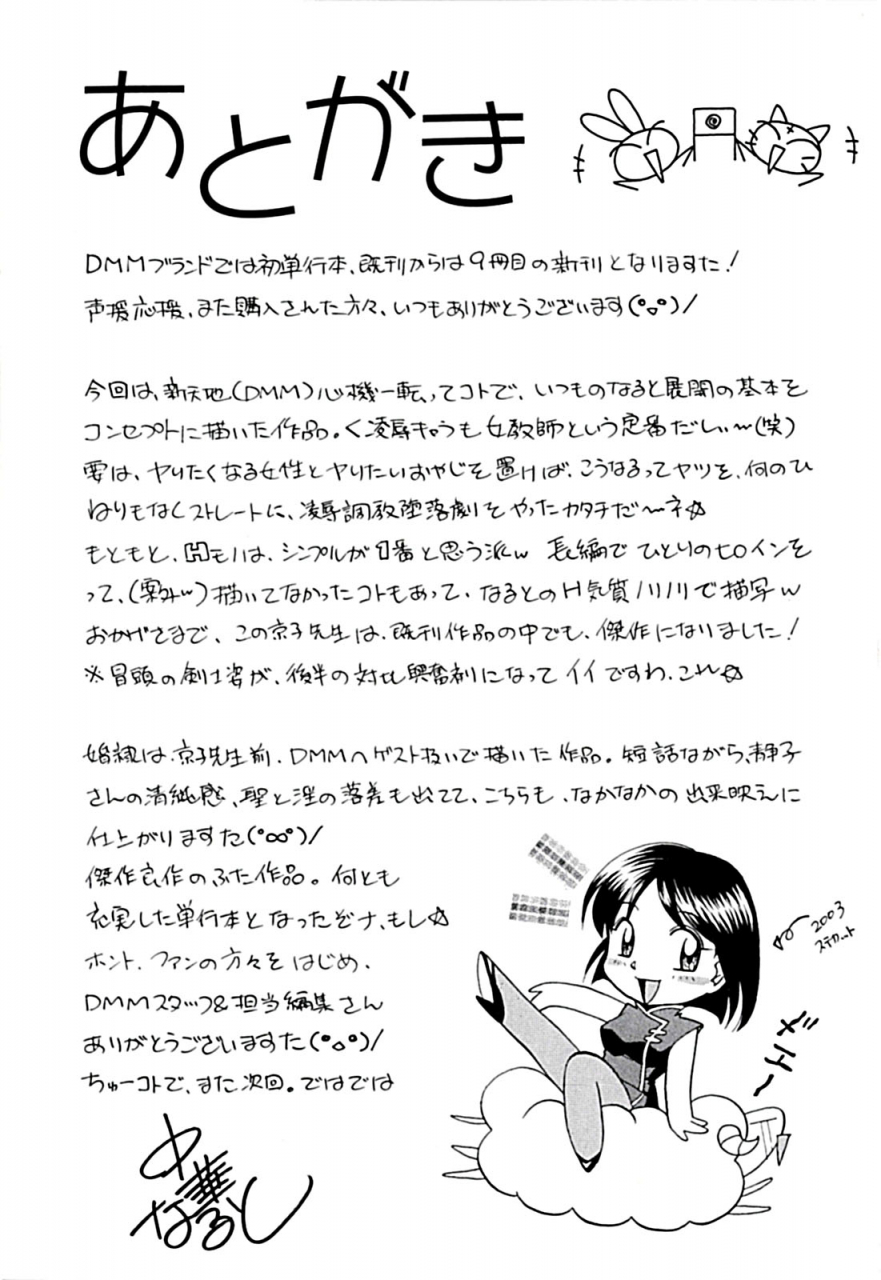 あとがき
DMMブランドでは初単行本、既刊からは9冊目の新刊となりますた!
声援応援、また購入された方々、いつもありがとうございます(°▵°)/
今回は、新天地(DMM)心機一転ってコトで、いつものなると展開の基本を
コンセプトに描いた作品。く凌辱きゃうも女教師という定番だしぃ〜(笑)
要は、ヤりたくなる女性とヤりたいおやじを置けば、こうなるってヤツを、何のひ
ねりもなくストレートに、凌辱調教堕落劇をやったカタチだ〜ネ☆
もともと、Hモノは、シンプルが1番と思う派w 長編でひとりのヒロインを
って、(案外w)描いてなかったコトもあって、なるとのH気質ノリノリで描写w
おかげさまで、この京子先生は、既刊作品の中でも、傑作になりました!
※冒頭の剣士姿が、後半の対比興奮剤になってイイですわ、これ☆
婚禄は、京子先生前、DMMへゲスト扱いで描いた作品。短話ながら、静子
さんの清純感、聖と淫の落差も出てて、こちらも、なかなかの出来映えに
仕上がりますた(°∞°)/
傑作良作のふた作品。何とも
充実した単行本となったぞナ、もし☆
ホント、ファンの方々をはじめ、
DMMスタッフ&担当編集さん
ありがとうございますた(°▵°)/
ちゅーコトで、また次回。ではでは
2003
ステカット
メ"エー
中華
なると